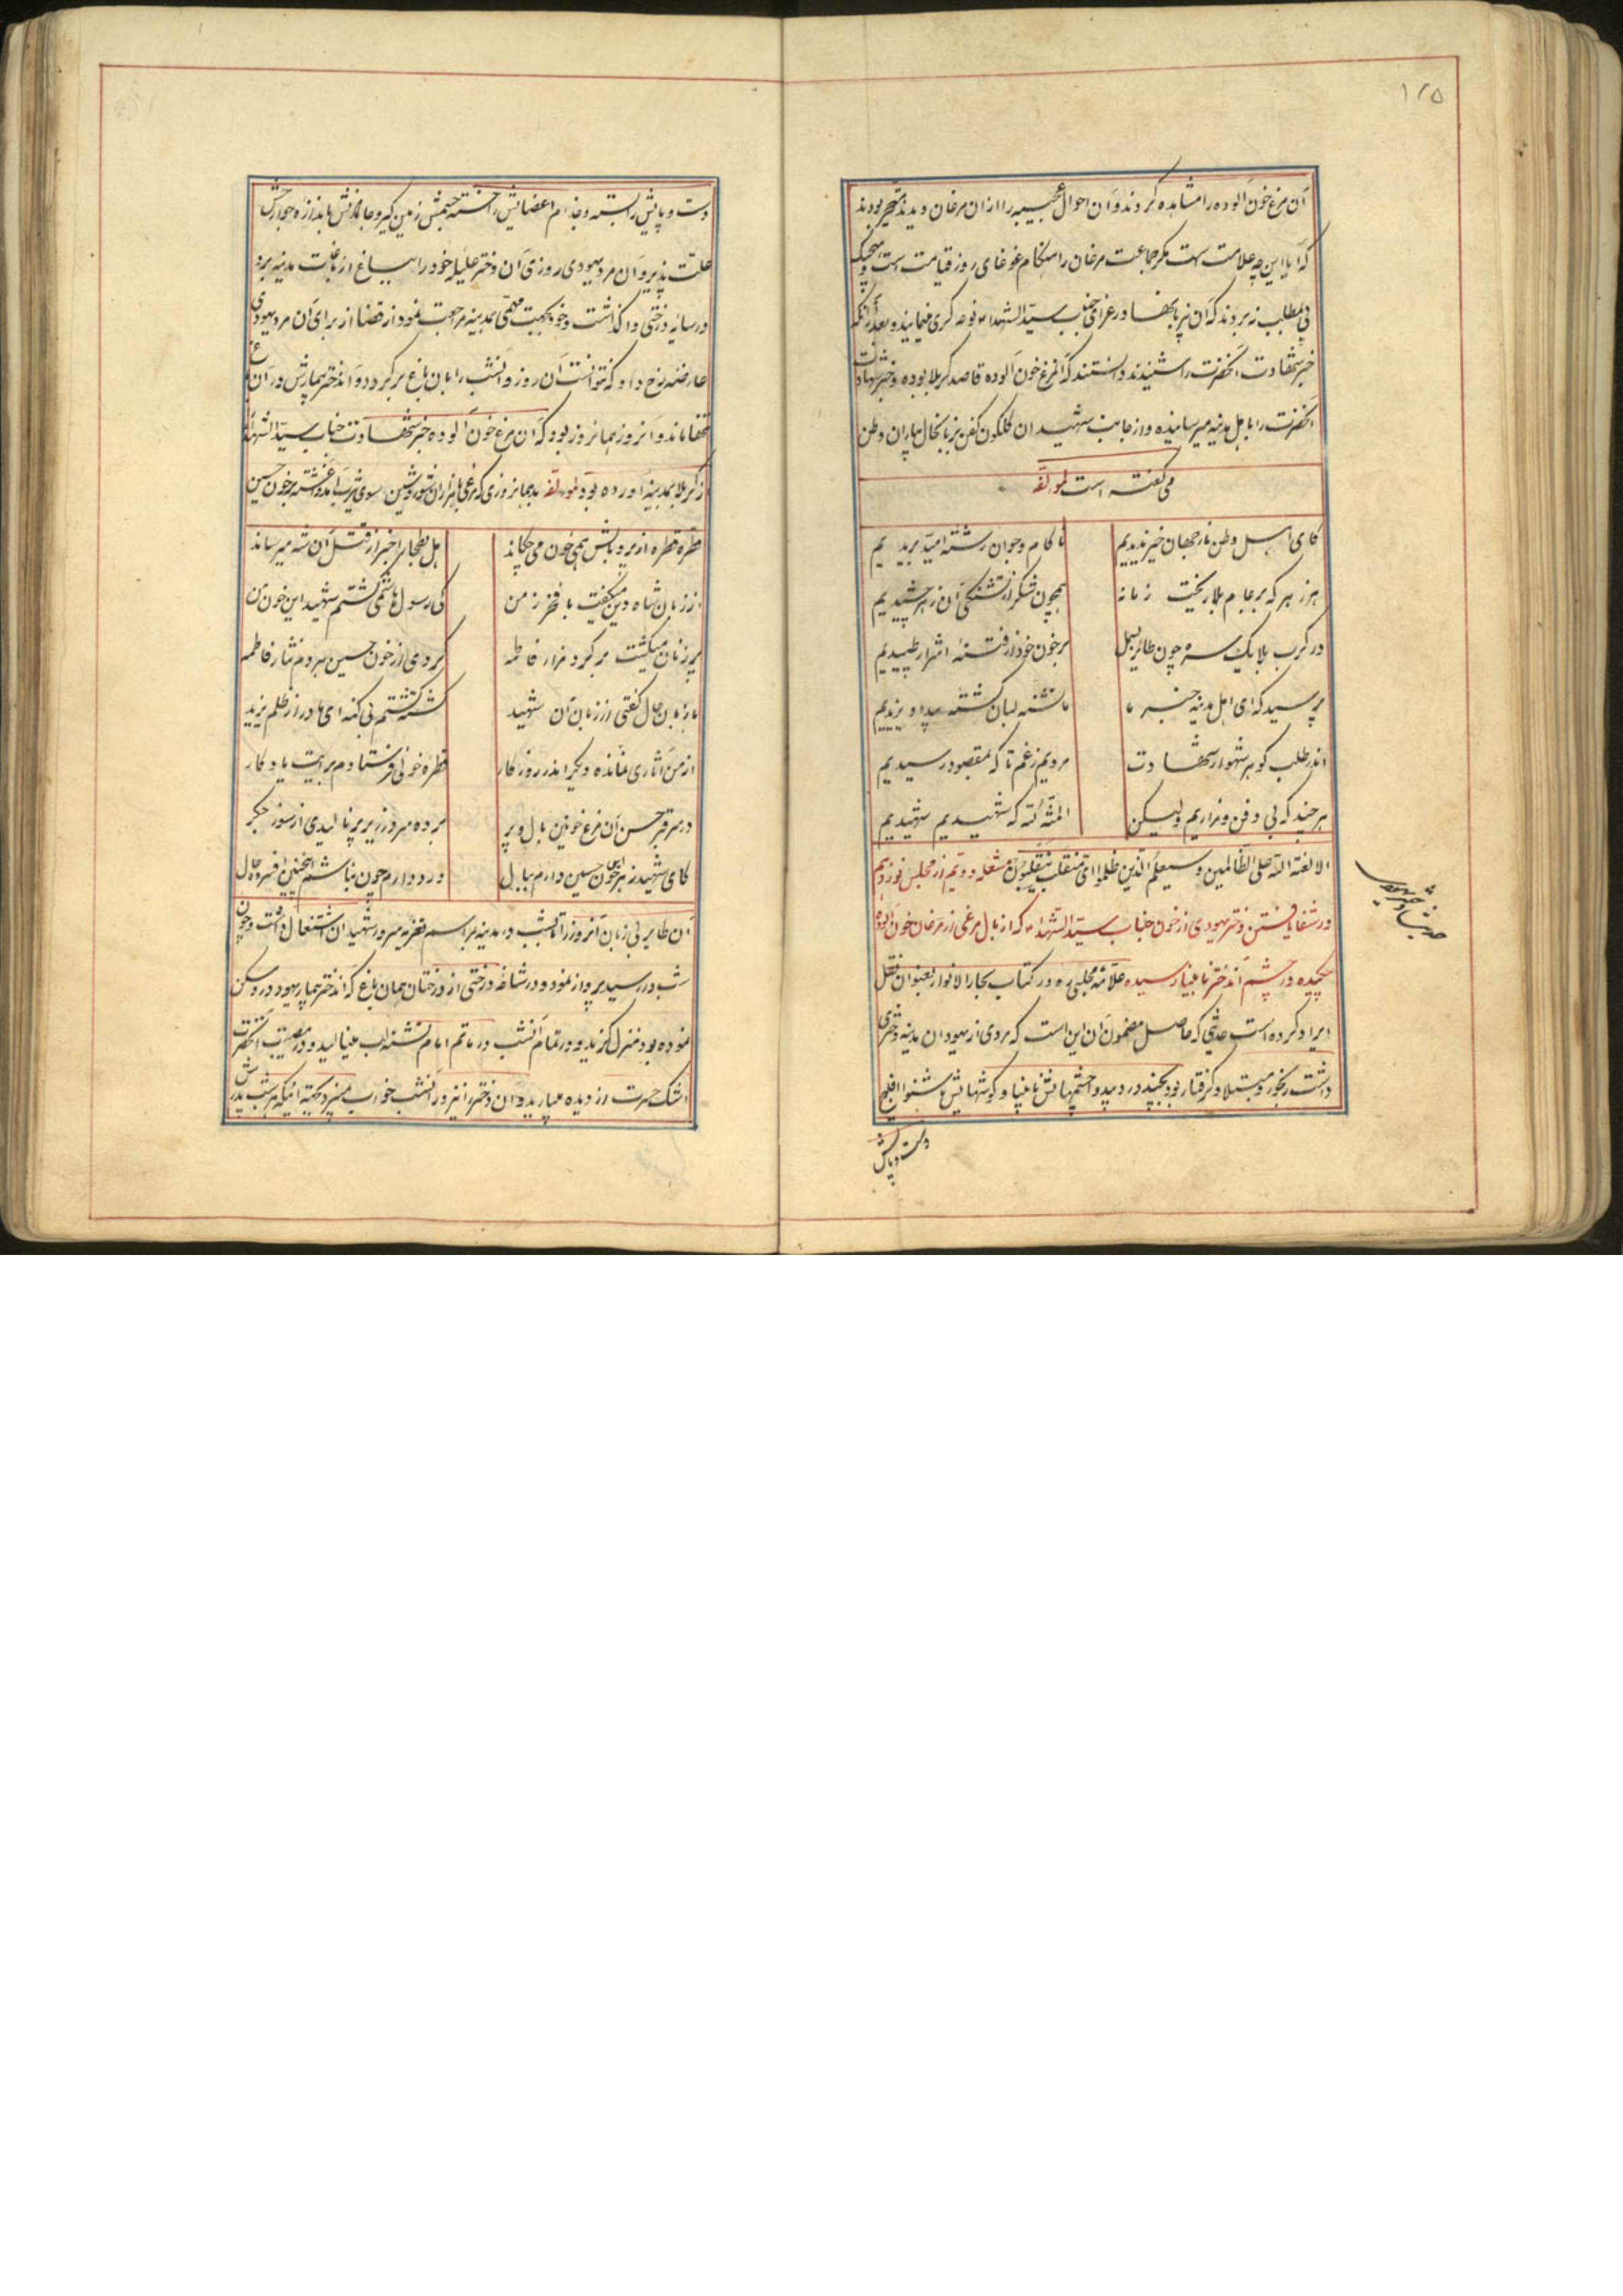 ۱۲۵
آن مرغ خون آلوده را مشاهده کردند و آن احوال عجیبه را از آن مرغان دیدند متحیر بودند
که آیا این چه علامت است مگر جماعت مرغان را هنگام غوغای روز قیامت است و هیچیک
پی بمطلب نبردند که آن در عزای جناب سیدالشهداء نوحه گری مینمایند و بعد از آنکه
خبر شهادت آنحضرت را شنیدند دانستند که آنمرغ خون آلوده قاصد کربلا بوده و خبر شهادت
آنحضرت را باهل مدینه میرسانیده و از جانب شهیدان گلگون کفن بزبانحال بیاران وطن
می گفته است لمؤلفه
کای اهل وطن ما ز جهان خیر ندیدیم
ناکام و جوان رشته امید بریدیم
هر زهر که بر جام بلا ریخت زمانه
همچون شکر از تشنگی آن زهر چشیدیم
در کرب بلا یکسره چون طائر بسمل
بر خون خود از فتنه اشرار طپیدیم
پرسید که ای اهل مدینه خبر ما
ما تشنه لبان کشته بیداد یزیدیم
اندر طلب گوهر شهوار شهادت
مردیم ز غم تا که بمقصود رسیدیم
هر چند که بی دفن و مزاریم ولیکن
المنة لله که شهیدیم شهیدیم
الا لعنة الله علی الظالمین و سیعلم الذین ظلموا ای منقلب ینقلبون مشعله دویم از مجلس نوزدهم
در شفا یافتن دختر یهودی از خون جناب سیدالشهداء که از بال مرغی از مرغان خون آلوده
چکیده در چشم آندختر نابینا رسیده علامه مجلسی ره در کتاب بحار الانوار بعنوان نقل
ایراد کرده است حدیثی که حاصل مضمون آن این است که مردی از یهودان مدینه دختری
داشت رنجور و مبتلا و گرفتار بود بچند درد بیدوا چشمهایش نابینا و گوشهایش ناشنوا افلیج
دست و پایش
دست و پایش را بسته و جذام اعضایش را خسته جسمش زمین گیر و
علت پذیر و آن مرد یهودی روزی آن دختر علیله خود را بباغ از باغات مدینه برد
در سایه درختی واگذاشت و خود بجهت مهمی بمدینه مراجعت نمود از قضا از برای آن مرد یهودی
عارضه رخ داد که نتوانست آن روز و آنشب را بآن باغ برگردد و آندختر بیمارش در آن باغ
تنها ماند و آنروز همانروز بود که آن مرغ خون آلوده خبر شهادت جناب سیدالشهدا
از کربلا بمدینه آورده بود لمؤلفه بدهمانروزی که مرغی با هزاران شور و شین سوی یثرب آمد آغشته بخون حسین
قطره قطره از پر و بالش همی خون می چکاند
اهل بطحا را خبر از قتل آن شه میرساند
از زبان شاه دین میگفت با فخر زمن
کی رسول هاشمی گشتم شهید این خون من
پر زنان میگشت بر گرد مزار فاطمه
کردی از خون حسین هردم نثار فاطمه
با زبان حال گفتی از زبان آن شهید
کشته گشتم بی گنه ای مادر از ظلم یزید
از من آثاری نمانده دیگر اندر روزگار
قطره خونی فرستادم برایت یادگار
در سر قبر حسن آن مرغ خونین بال و پر
برده سر در زیر پر نالیدی از سوز جگر
کای شهید زهر خون حسین دارم ببال
درد دارم چون نباشم اینچنین افسرده حال
آن طایر بی زبان آنروز را تا بشب در مدینه مراسم تعزیه سرور شهیدان اشتغال داشت و چون
شب در رسید پرواز نمود و در شاخه درختی از درختان همان باغ که آندختر بیمار یهود در او مسکن
نموده بود منزل گزید و در تمام آنشب در ماتم امام تشنه لب مینالید و در مصیبت آنحضرت
اشک حسرت از دیده میبارید و آن دختر را نیز در آنشب خواب نمیبرد بجهة اینکه هر شب پدرش